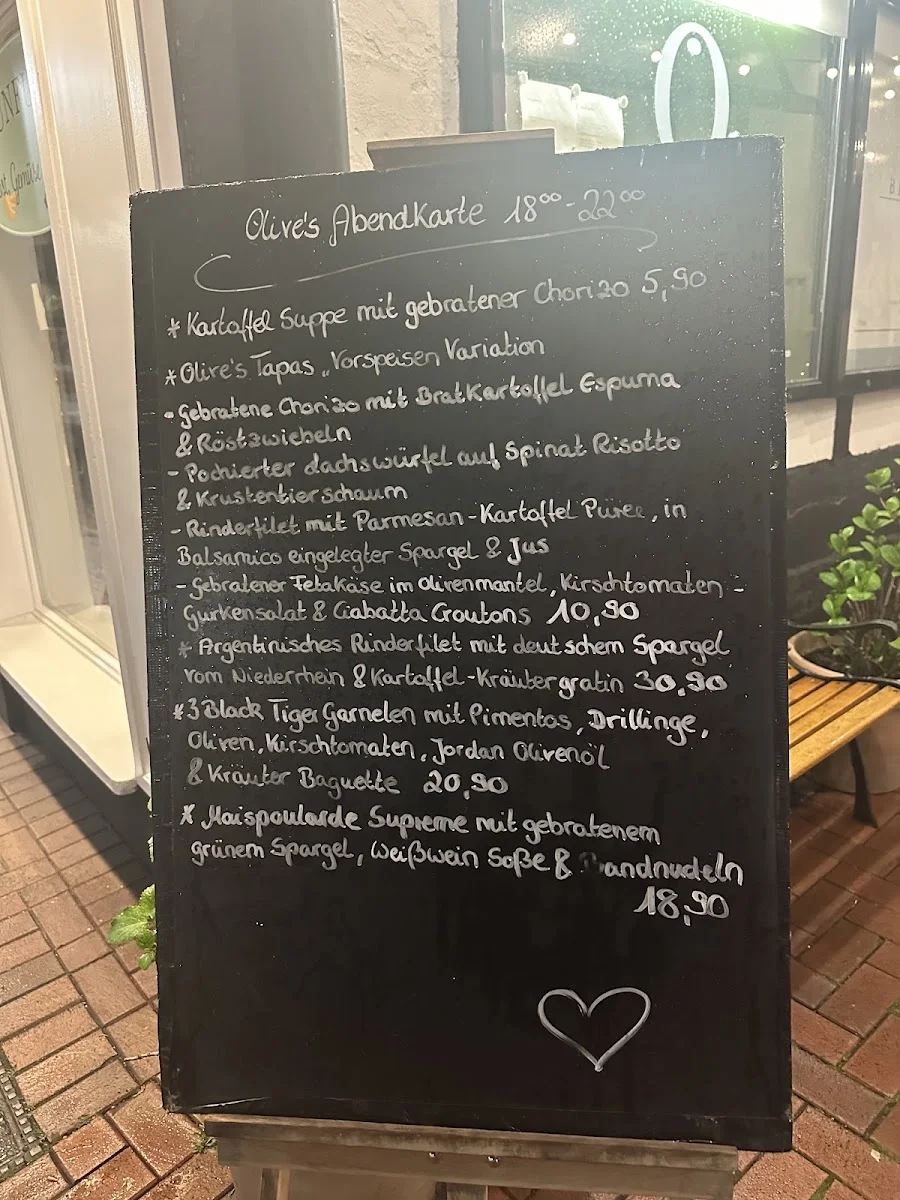 Olive's Abendkarte 18⁰⁰-22⁰⁰
* Kartoffel Suppe mit gebratener Chorizo 5,90
* Olive's Tapas „Vorspeisen Variation
- Gebratene Chorizo mit Bratkartoffel Espuma
& Röstzwiebeln
- Pochierter dachswürfel auf Spinat Risotto
& Krustentierschaum
- Rinderfilet mit Parmesan-Kartoffel Püree, in
Balsamico eingelegter Spargel & Jus
- Gebratener Fetakäse im Olivenmantel, Kirschtomaten -
Gurkensalat & Ciabatta Croutons 10,90
* Argentinisches Rinderfilet mit deutschem Spargel
vom Niederrhein & Kartoffel-Kräutergratin 30,90
* 3 Black Tiger Garnelen mit Pimentos, Drillinge,
Oliven, Kirschtomaten, Jordan Olivenöl
& Kräuter Baguette 20,90
* Maispoularde Supreme mit gebratenem
grünem Spargel, Weißwein Soße & Bandnudeln
18,90